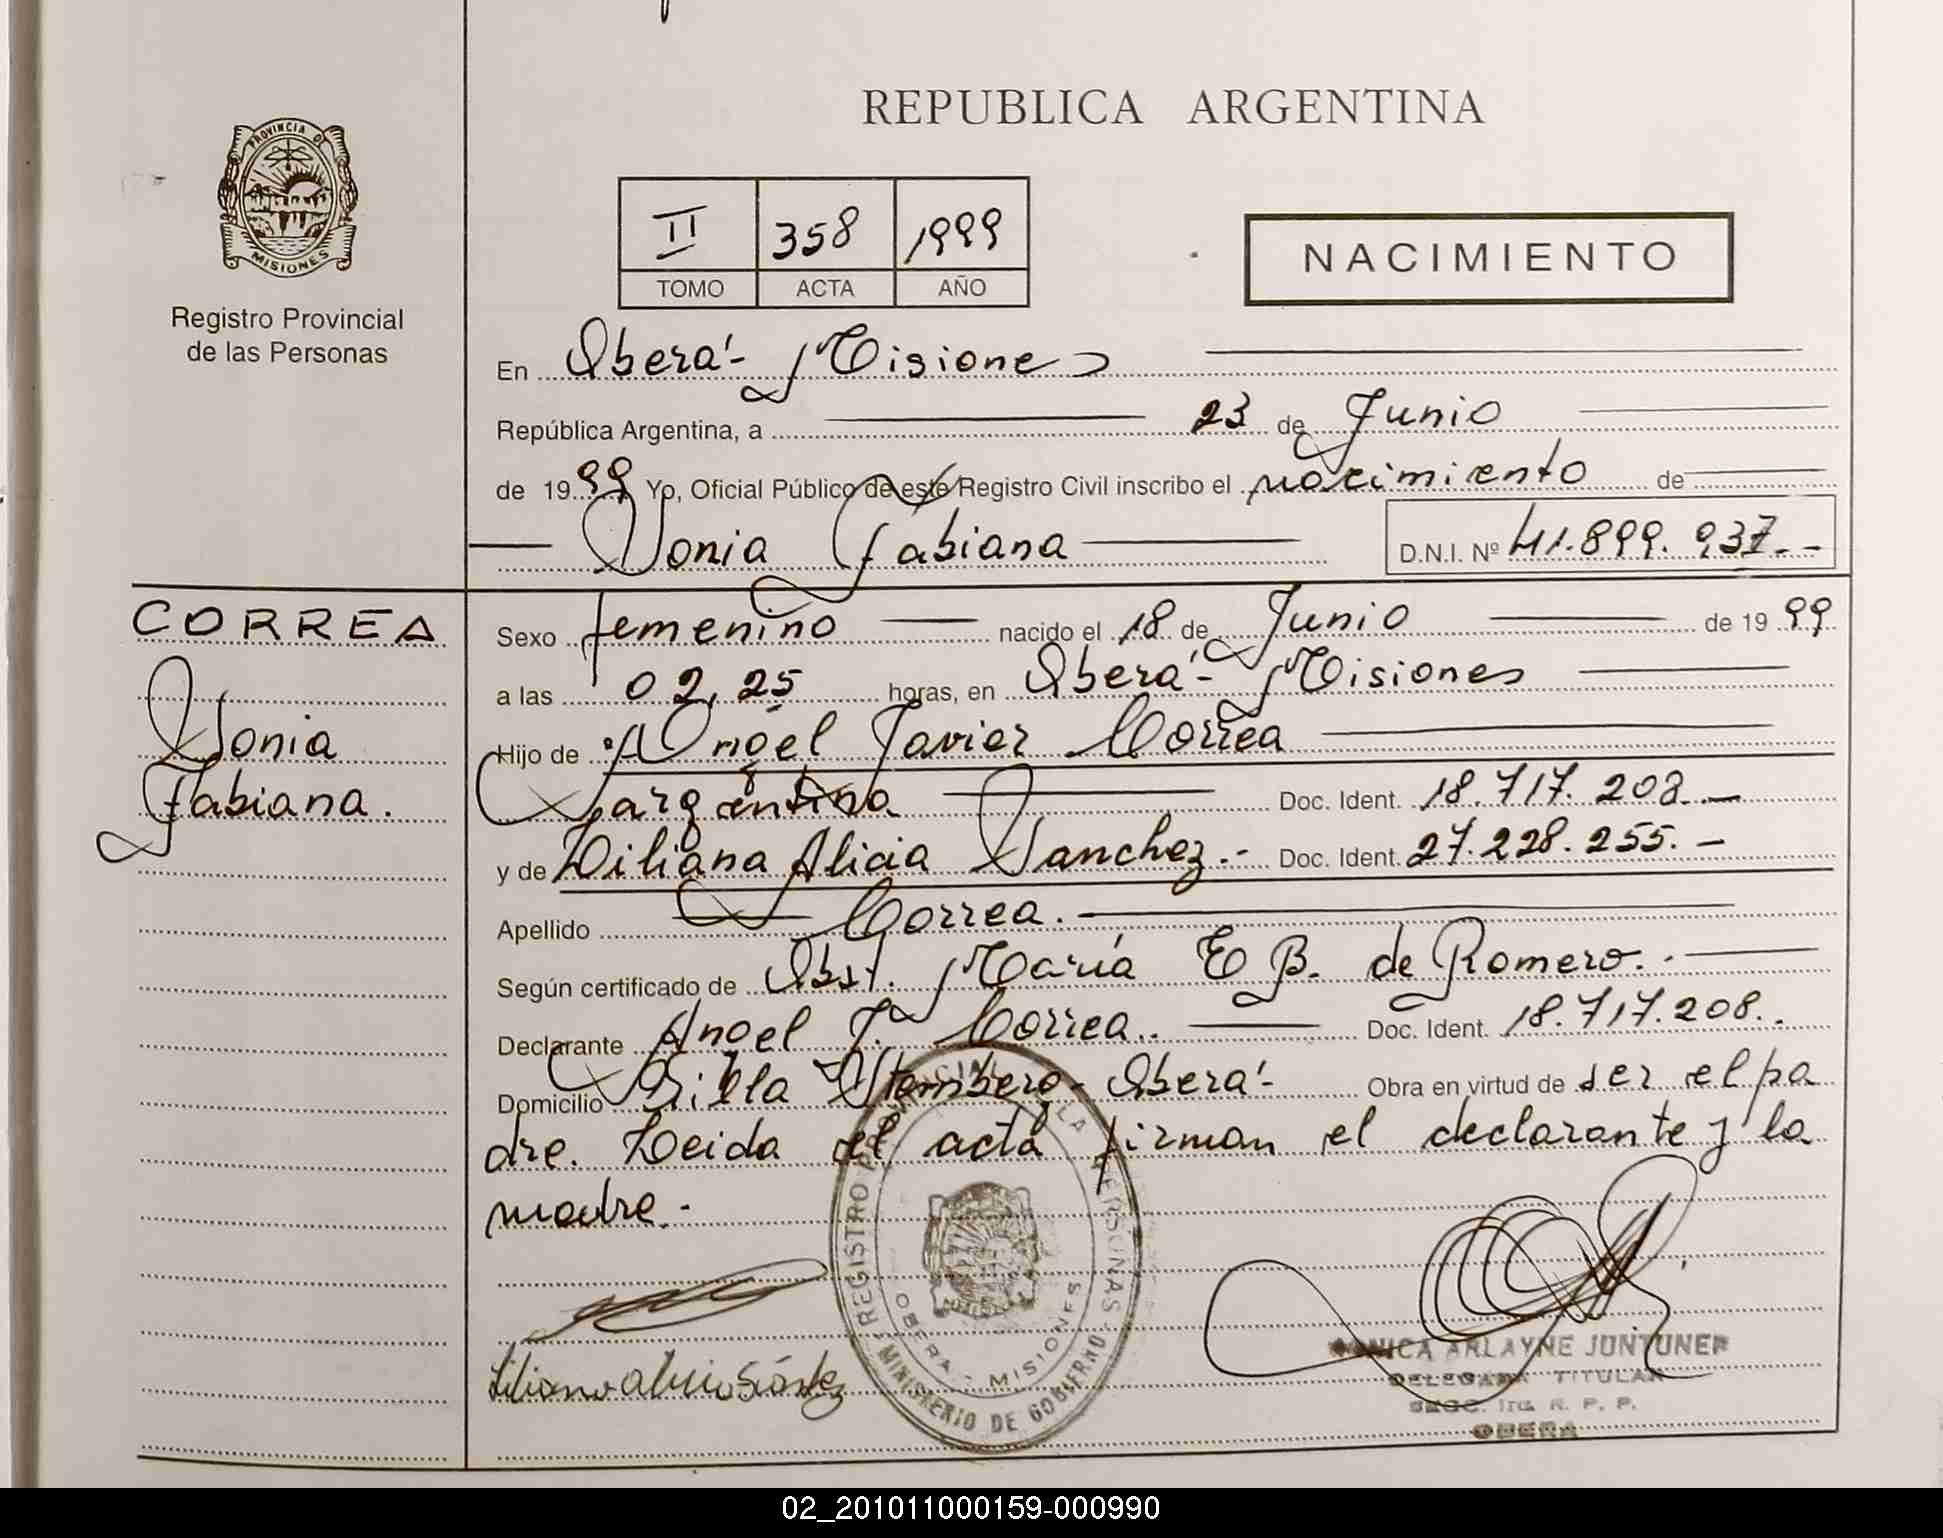 REPUBLICA ARGENTINA
PROVINCIA DE
MISIONES
Registro Provincial
de las Personas
II 358 1999
TOMO ACTA AÑO
NACIMIENTO
En Oberá - Misiones
República Argentina, a 23 de Junio
de 1999 Yo, Oficial Público de este Registro Civil inscribo el nacimiento de
Sonia Fabiana D.N.I. Nº 41.899.937.-
CORREA
Sonia
Fabiana.
Sexo femenino nacido el 18 de Junio de 1999
a las 02,25 horas, en Oberá - Misiones
Hijo de Angel Javier Correa
argentino Doc. Ident. 18.717.208.-
y de Liliana Alicia Sanchez.- Doc. Ident. 27.228.255.-
Apellido Correa.
Según certificado de Obst. María E B. de Romero.
Declarante Angel J. Correa.. Doc. Ident. 18.717.208..
Domicilio Villa Stemberg - Oberá - Obra en virtud de ser el pa
dre. Leida el acta firman el declarante y la
madre.-
REGISTRO PROVINCIAL DE LAS PERSONAS
OBERA - MISIONES
MINISTERIO DE GOBIERNO
Liliana Alicia Sánchez
MONICA ARLAYNE JUNTUNEN
DELEGADA TITULAR
SECC. 1ra. R. P. P.
OBERA
02_201011000159-000990